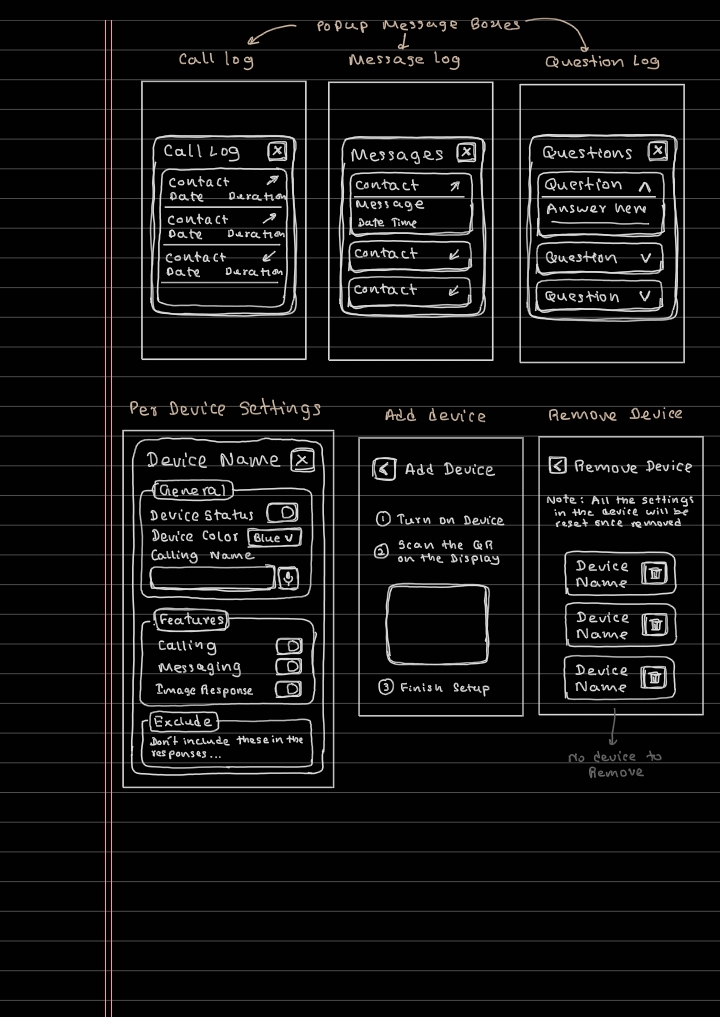 Popup Message Boxes
Call log
Message log
Question Log
Call Log X
Contact
Date Duration
Contact
Date Duration
Contact
Date Duration
Messages X
Contact
Message
Date Time
Contact
Contact
Questions X
Question
Answer here
Question
Question
Per Device Settings
Device Name X
General
Device Status
Device Color Blue V
Calling Name
Features
Calling
Messaging
Image Response
Exclude
Don't include these in the
responses...
Add device
< Add Device
1 Turn on Device
2 Scan the QR
on the Display
3 Finish Setup
Remove Device
< Remove Device
Note: All the settings
in the device will be
reset once removed
Device
Name
Device
Name
Device
Name
No device to
Remove